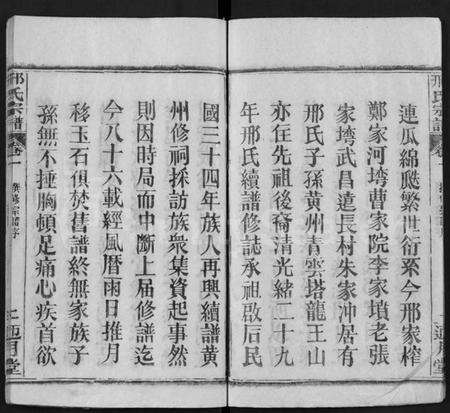 連瓜綿颷繁世衍累今邢家榨
鄭家河塆曹家院李家墳老張
家塆武昌遣長村朱家冲居有
邢氏子孫黄州青雲塔龍王山
亦在先祖後裔清光緒二十九
年邢氏續譜修誌承祖啟后民
國三十四年族人再興續譜黄
州修祠採訪族衆集資起事然
則因時局而中斷上届修譜迄
今八十六載經風暦雨日推月
移玉石俱焚舊譜終無家族子
孫無不捶胸頓足痛心疾首欲
邢氏宗譜
卷一